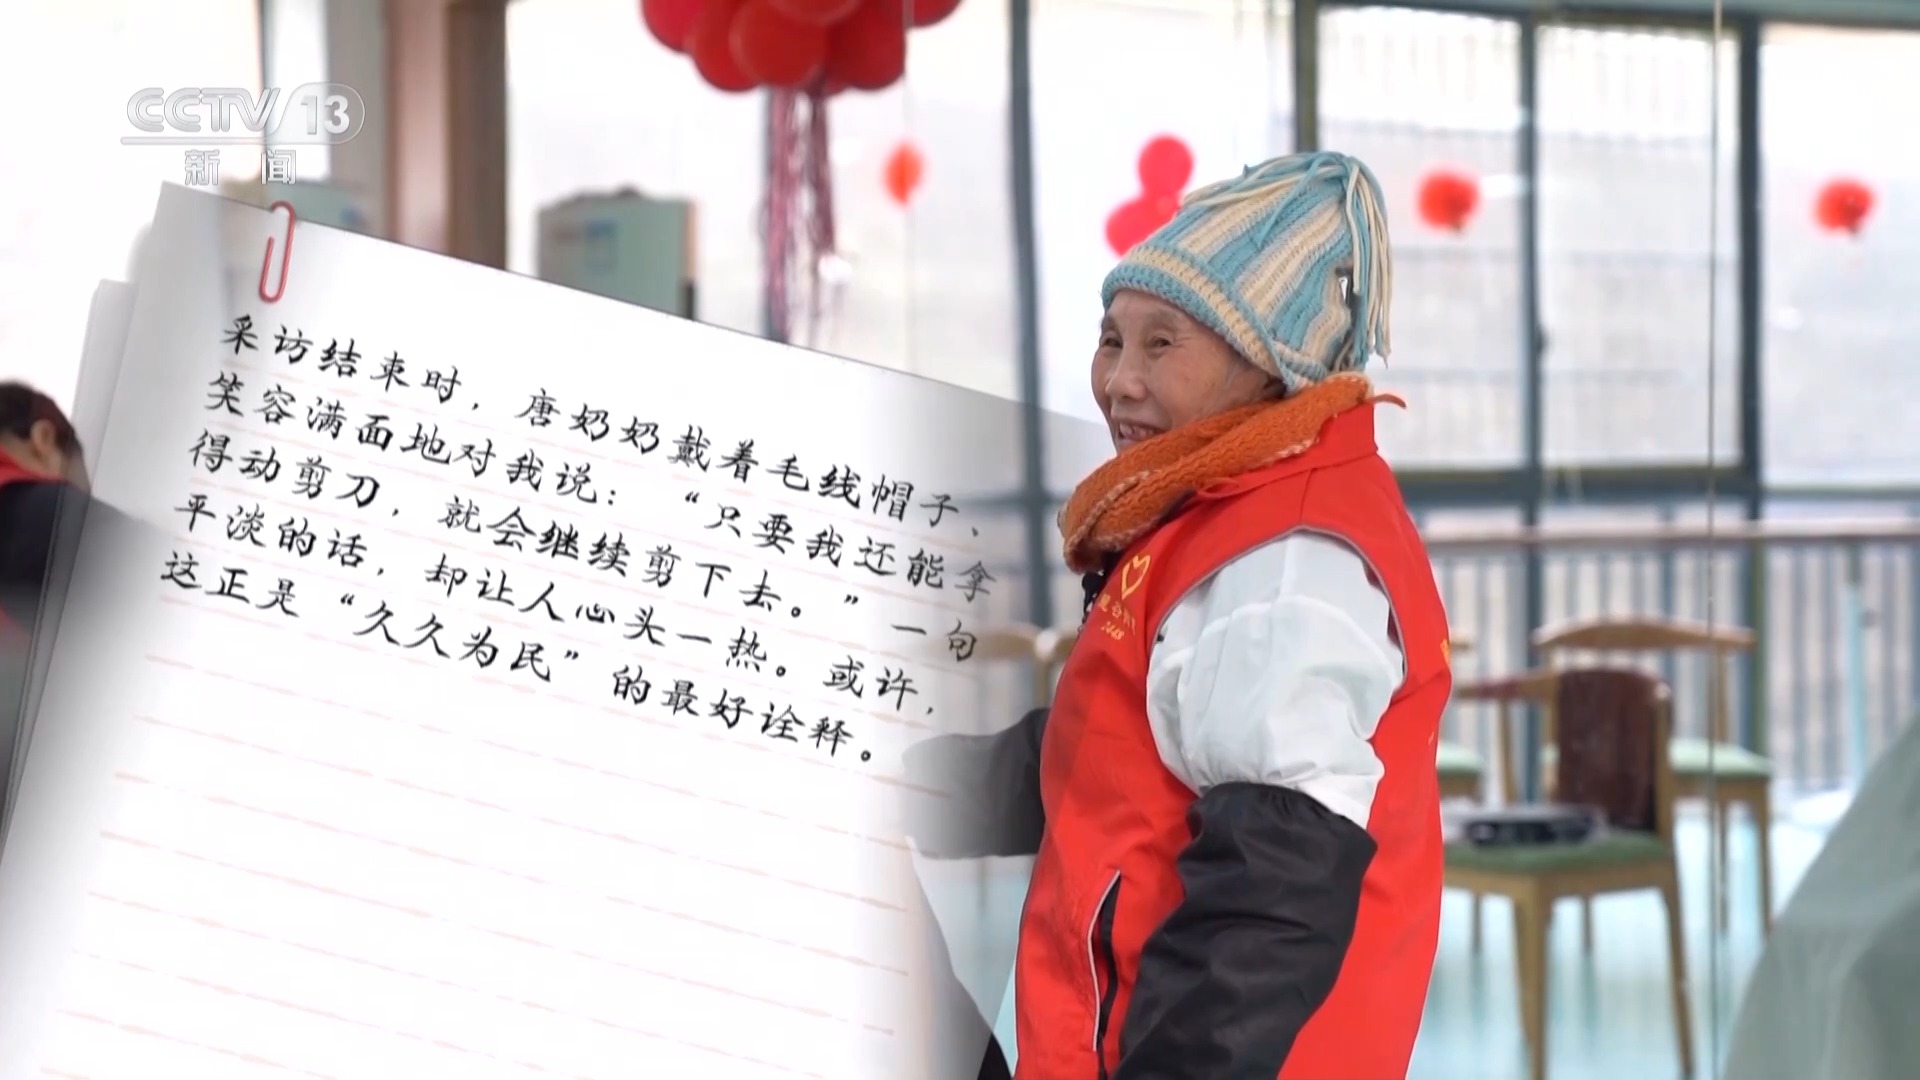 CCTV 13
新闻
采访结束时，唐奶奶戴着毛线帽子、
笑容满面地对我说：“只要我还能拿
得动剪刀，就会继续剪下去。”一句
平淡的话，却让人心头一热。或许，
这正是“久久为民”的最好诠释。